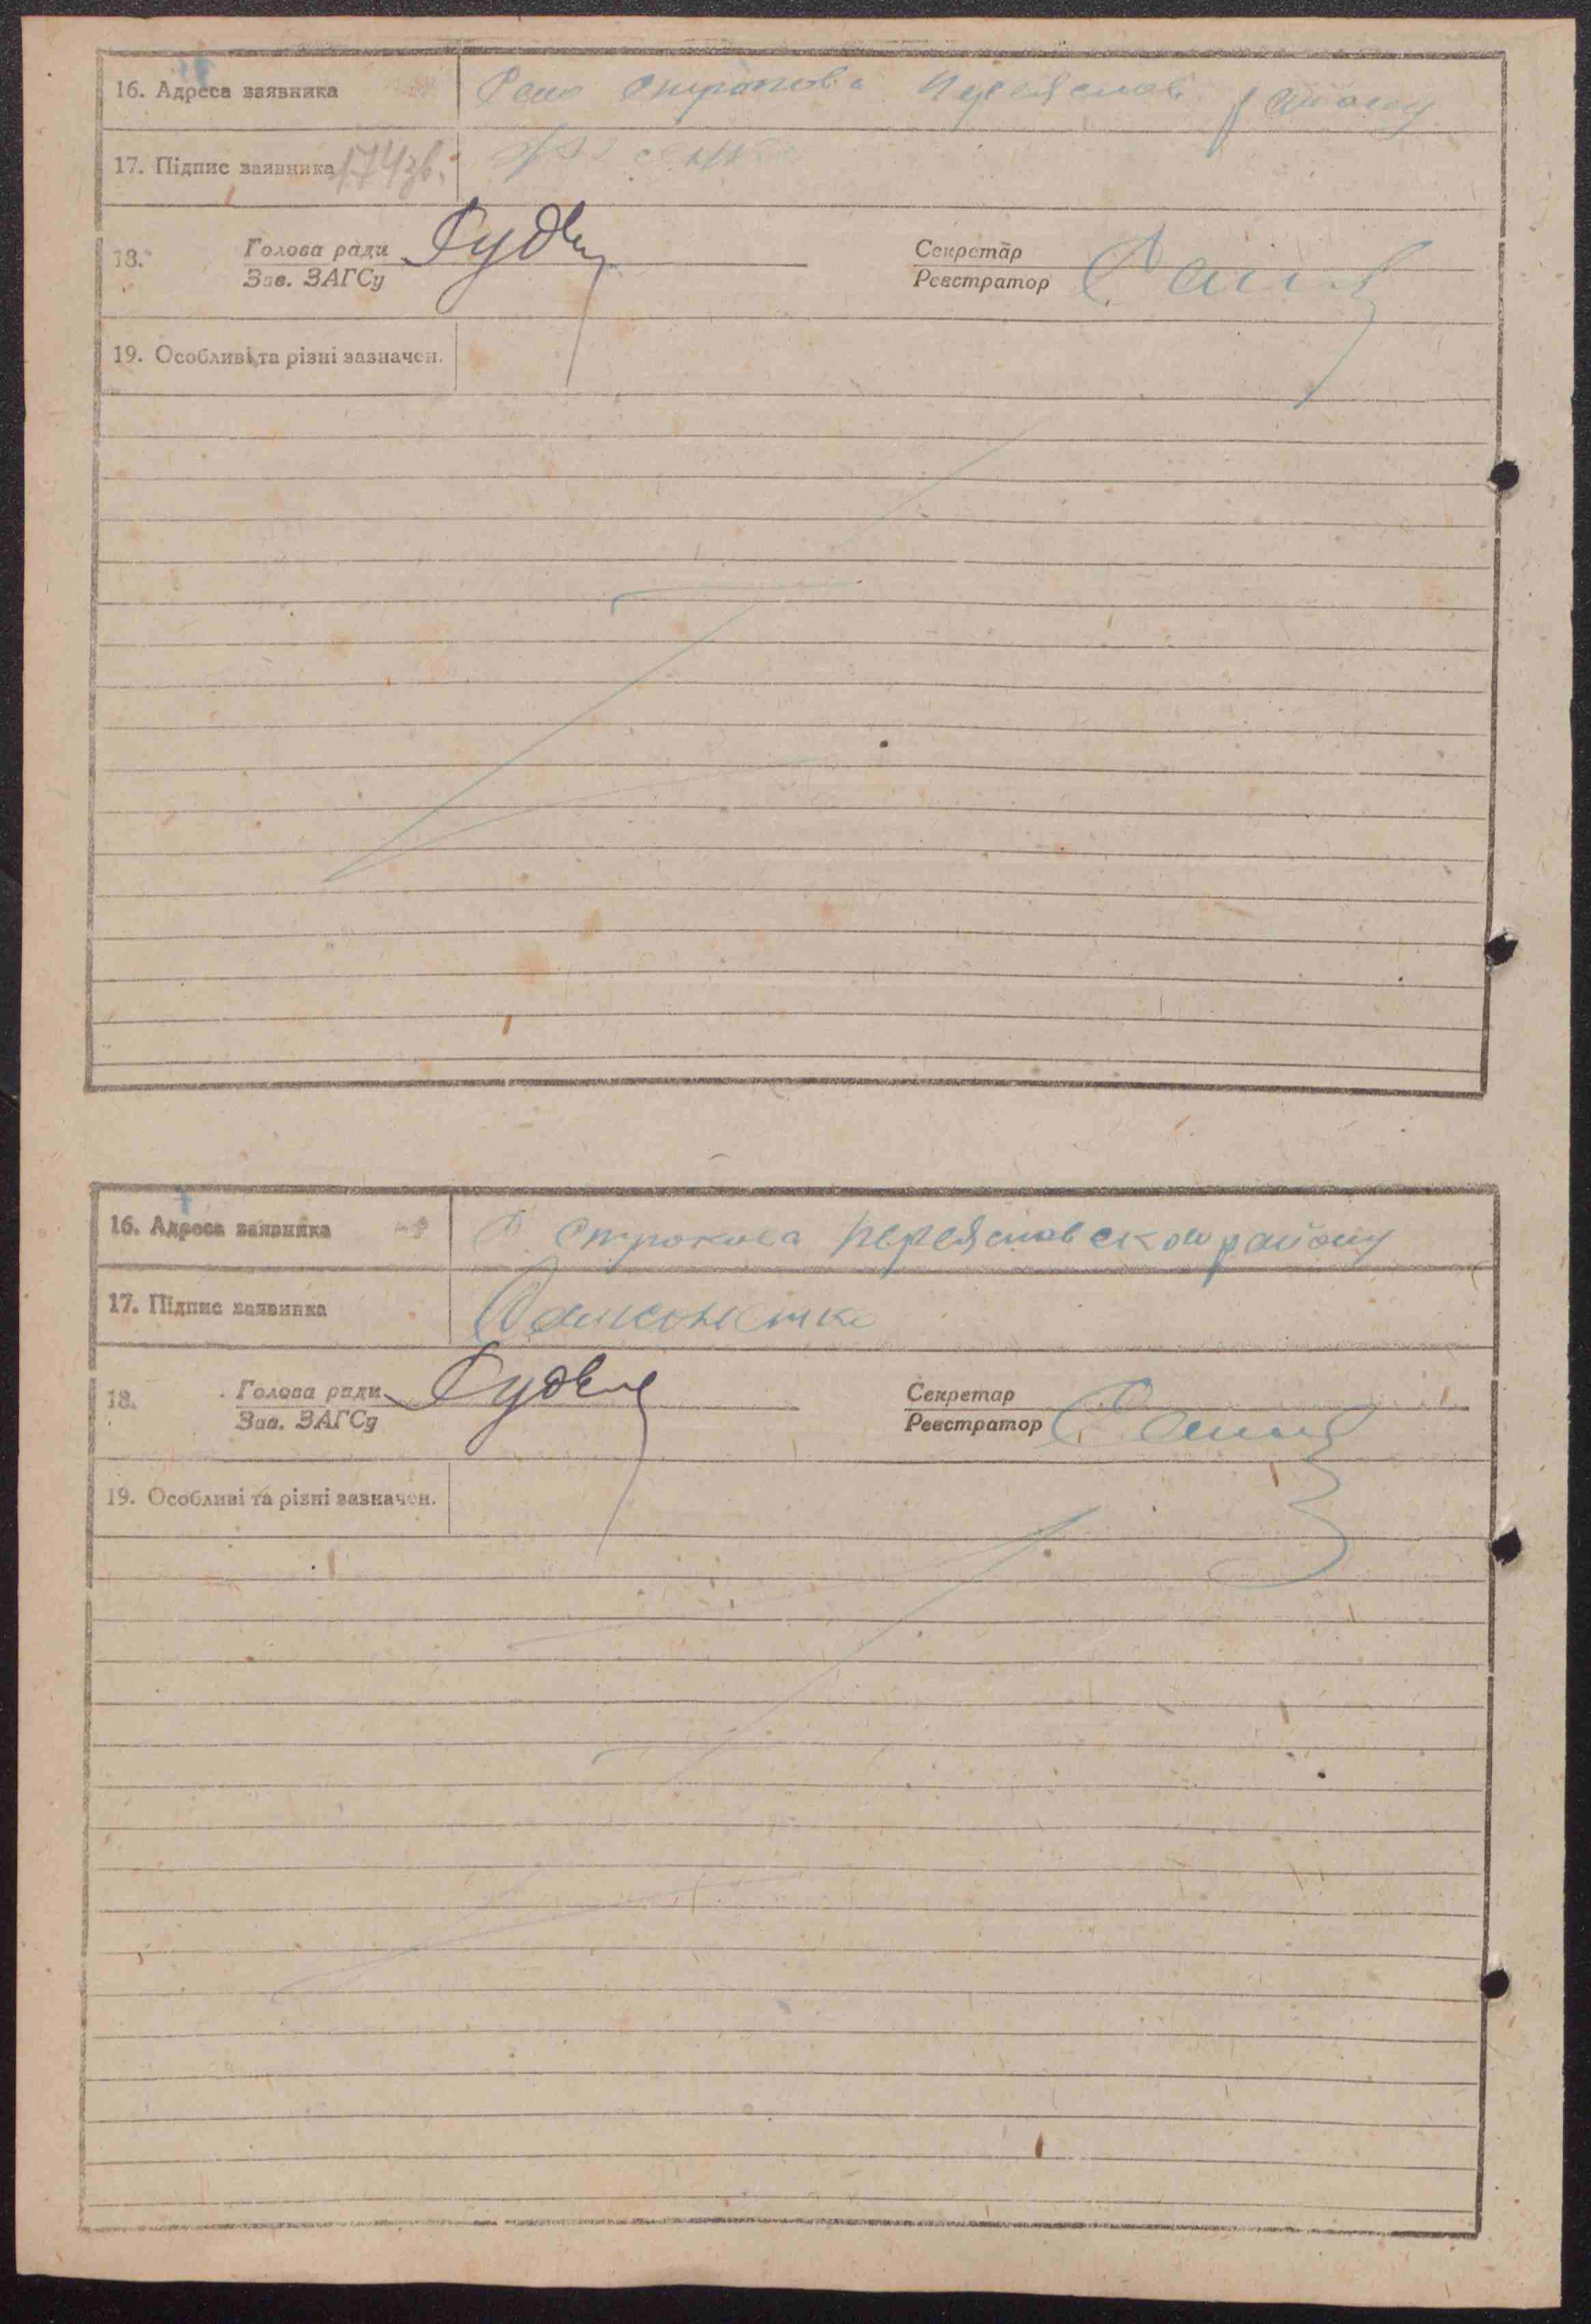 16. Адреса заявника Село Строкова Переяслав району
17. Підпис заявника 174зв.
18. Голова ради Секретар
Зав. ЗАГСу Реєстратор
19. Особливі та різні зазначен.
16. Адреса заявника С Строкова Переяславском району
17. Підпис заявника
18. Голова ради Секретар
Зав. ЗАГСу Реєстратор
19. Особливі та різні зазначен.